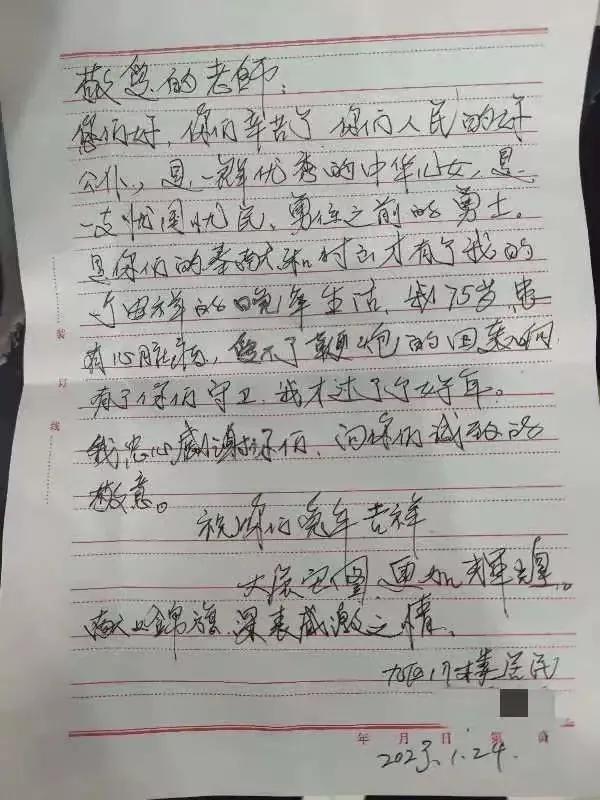 敬愛的老師：
您们好，你们辛苦了 你们人民的好
公仆，是一群优秀的中华儿女，是
一支忧国忧民、勇往之前的勇士。
是你们的奉献和付出才有了我的
的晚年生活，我75岁，患
有心脏病，受不了鞭炮的回声响
有了你们守卫，我才过了个好年。
我忠心感谢你们，向你们诚致的
敬意。
祝你们兔年吉祥
大展宏图，更加輝煌。
献上錦旗 深表感激之情。
楼居民
装订线
年 月 日 第 頁
2023.1.24.